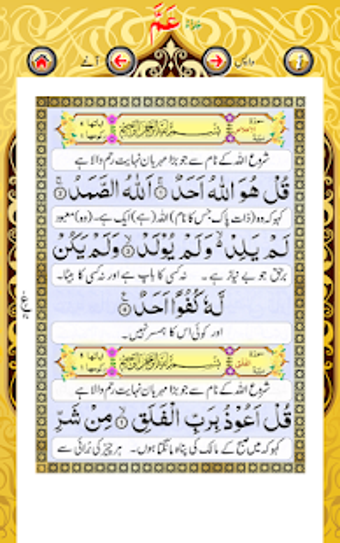 پارہ عَمَّ
آگے واپس
سورة الإخلاص بِسْمِ اللهِ الرَّحْمٰنِ الرَّحِيْمِ
شروع اللہ کے نام سے جو بڑا مہربان نہایت رحم والا ہے
قُلْ هُوَ اللّٰهُ اَحَدٌ ۝۱ اَللّٰهُ الصَّمَدُ ۝۲
کہو کہ وہ (ذات پاک جس کا نام) اللہ (ہے) ایک ہے۔ (وہ) معبود
لَمْ يَلِدْ وَلَمْ يُوْلَدْ ۝۳ وَلَمْ يَكُنْ
برحق جو بے نیاز ہے۔ نہ کسی کا باپ ہے اور نہ کسی کا بیٹا۔
لَّهٗ كُفُوًا اَحَدٌ ۝۴
اور کوئی اس کا ہمسر نہیں۔
سورة الفلق بِسْمِ اللهِ الرَّحْمٰنِ الرَّحِيْمِ
شروع اللہ کے نام سے جو بڑا مہربان نہایت رحم والا ہے
قُلْ اَعُوْذُ بِرَبِّ الْفَلَقِ ۝۱ مِنْ شَرِّ
کہو کہ میں صبح کے مالک کی پناہ مانگتا ہوں۔ ہر چیز کی برائی سے